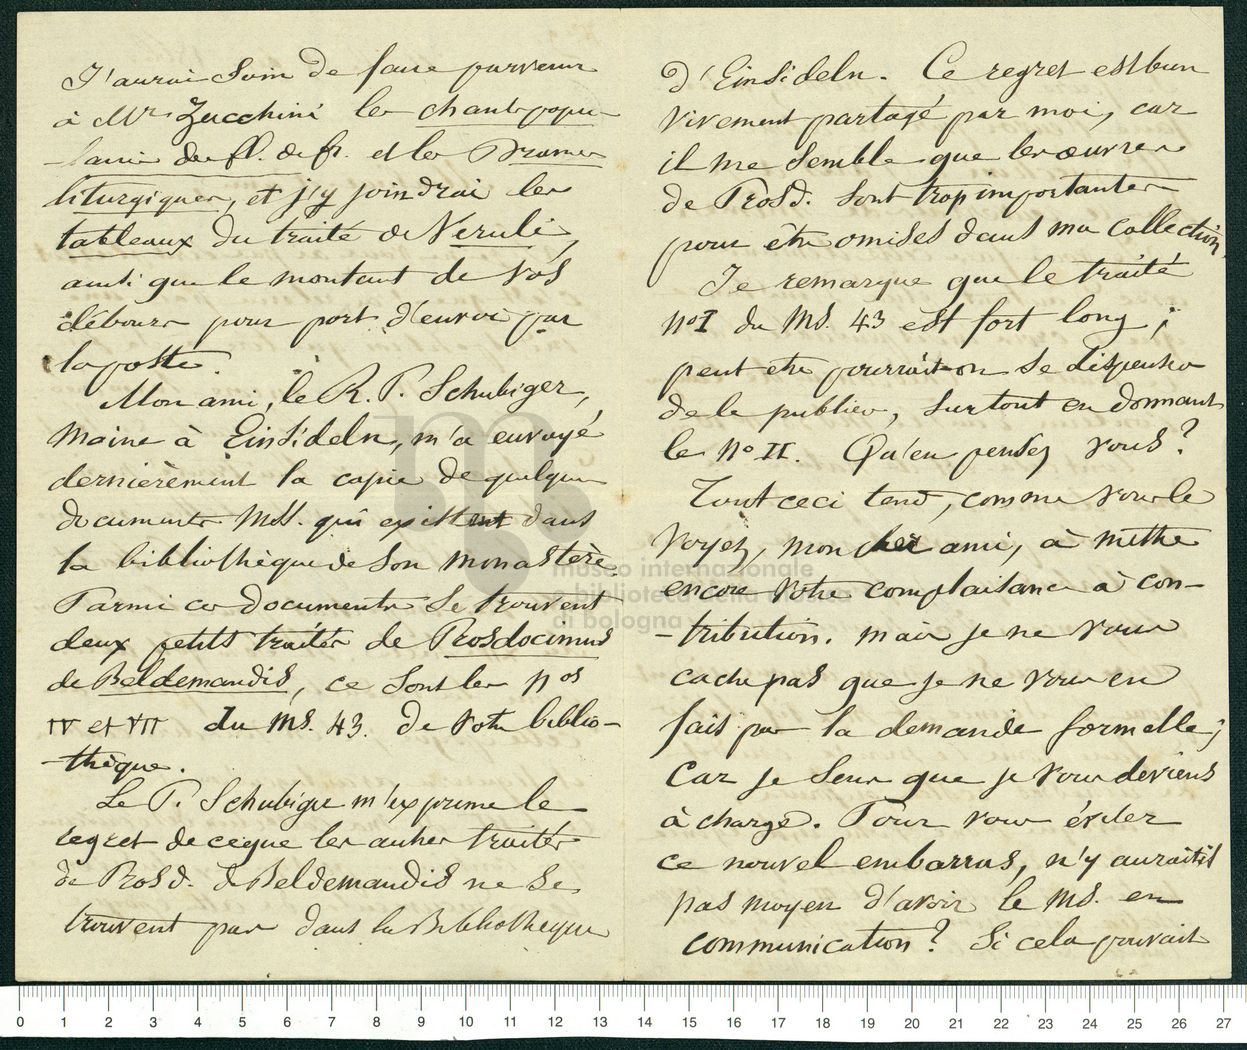 J'aurai soin de faire parvenir
à Mr Zucchini les chants popu-
laires des fl. de fr. et les Drames
liturgiques, et j'y joindrai les
tableaux du traité de Nerulé,
ainsi que le montant de vos
débours pour port d'envoi par
la poste.
Mon ami, le R. P. Schubiger,
Moine à Einsideln, m'a envoyé
dernièrement la copie de quelques
documents Mss. qui existent dans
la bibliothèque de son monastère.
Parmi ces documents se trouvent
deux petits traités de Prosdocimus
de Beldemandis, ce sont les nos
IV et VII du Ms. 43. de votre biblio-
thèque.
Le P. Schubiger m'exprime le
regret de ce que les autres traités
de Prosd. de Beldemandis ne se
trouvent pas dans la Bibliothèque
d'Einsideln. Ce regret est bien
vivement partagé par moi, car
il me semble que les œuvres
de Prosd. sont trop importantes
pour être omises dans ma collection.
Je remarque que le traité
no I du Ms. 43 est fort long;
peut etre pourrait-on se dispenser
de le publier, surtout en donnant
le no II. Qu'en pensez vous?
Tout ceci tend, comme vous le
voyez, mon cher ami, à mettre
encore votre complaisance à con-
-tribution. mais je ne vous
cache pas que je ne vous en
fais pas la demande formelle;
car je sens que je vous deviens
à charge. Pour vous éviter
ce nouvel embarras, n'y aurait il
pas moyen d'avoir le ms. en
communication? Si cela pouvait
museo internazionale
e biblioteca della musica
di bologna
0 1 2 3 4 5 6 7 8 9 10 11 12 13 14 15 16 17 18 19 20 21 22 23 24 25 26 27